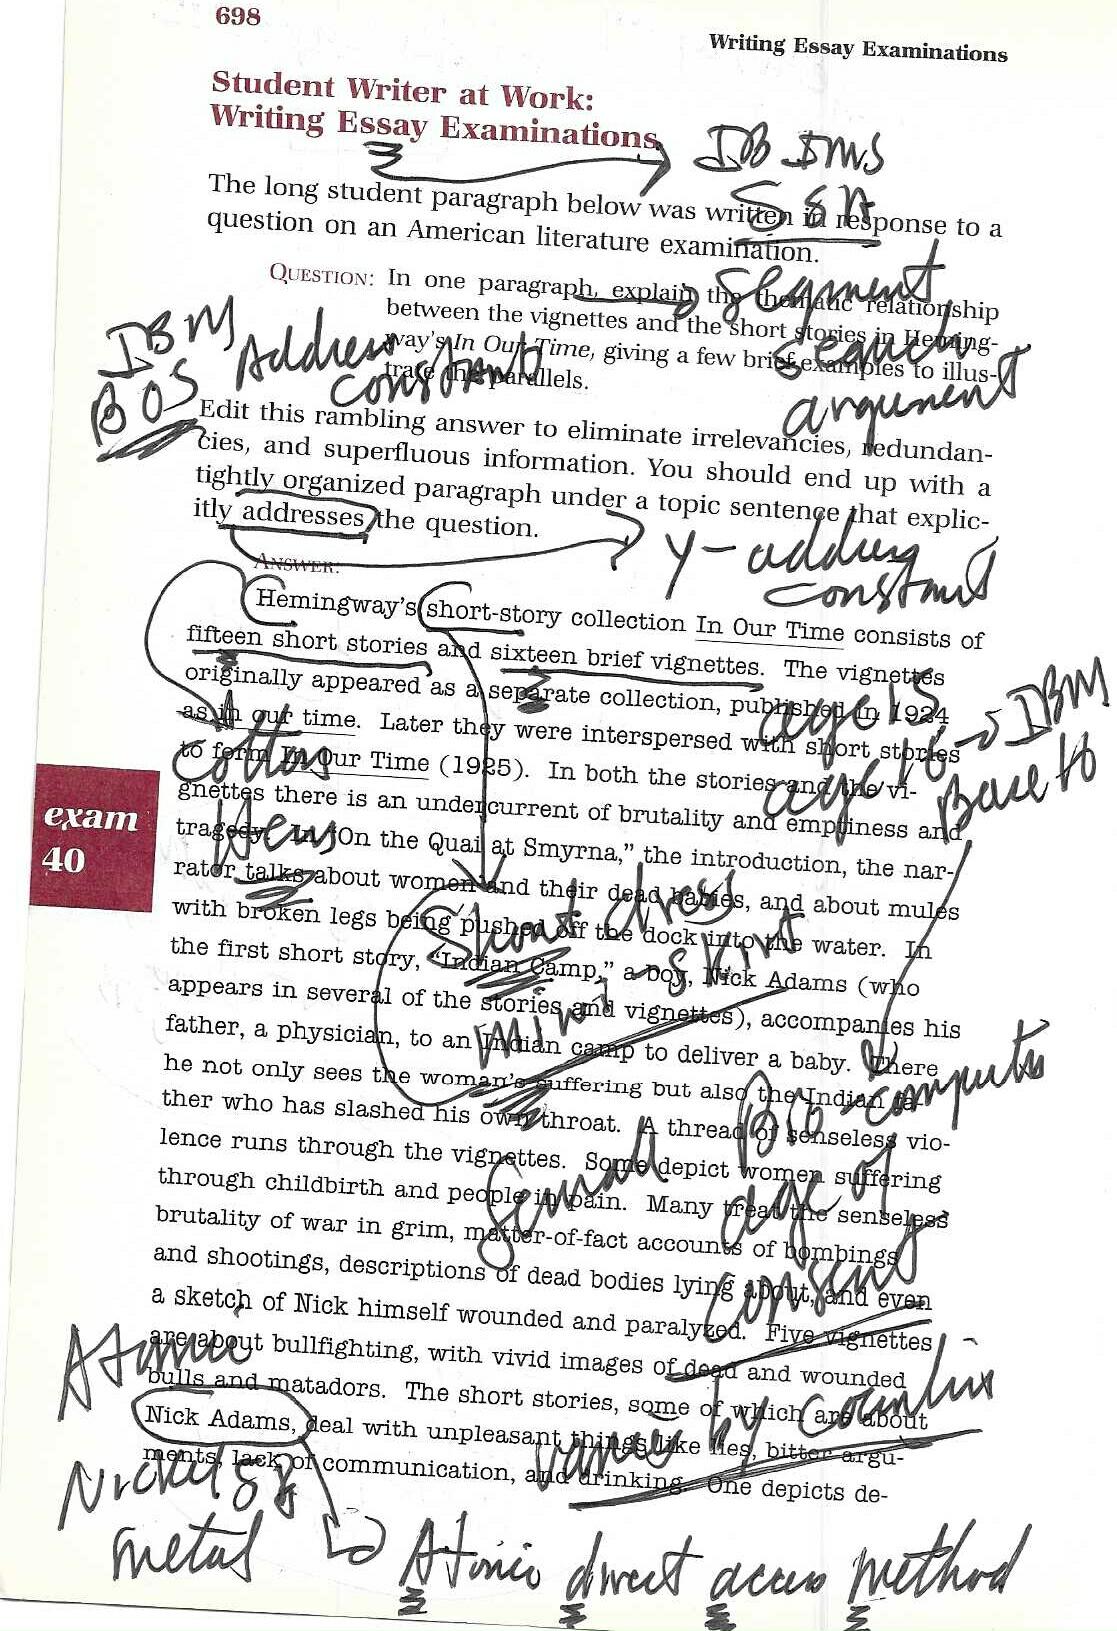 698
Writing Essay Examinations
Student Writer at Work:
Writing Essay Examinations
DB DMS
SSA
The long student paragraph below was written in response to a
question on an American literature examination.
segment
search
argument
QUESTION: In one paragraph, explain the thematic relationship
between the vignettes and the short stories in Heming-
way's In Our Time, giving a few brief examples to illus-
trate the parallels.
IBM
BOS
Address
constant
Edit this rambling answer to eliminate irrelevancies, redundan-
cies, and superfluous information. You should end up with a
tightly organized paragraph under a topic sentence that explic-
itly addresses the question.
y-address
constant
ANSWER:
Hemingway's short-story collection In Our Time consists of
fifteen short stories and sixteen brief vignettes. The vignettes
originally appeared as a separate collection, published in 1924
as in our time. Later they were interspersed with short stories
to form In Our Time (1925). In both the stories and the vi-
gnettes there is an undercurrent of brutality and emptiness and
tragedy. In "On the Quai at Smyrna," the introduction, the nar-
rator talks about women and their dead babies, and about mules
with broken legs being pushed off the dock into the water. In
the first short story, "Indian Camp," a boy, Nick Adams (who
appears in several of the stories and vignettes), accompanies his
father, a physician, to an Indian camp to deliver a baby. There
he not only sees the woman's suffering but also the Indian fa-
ther who has slashed his own throat. A thread of senseless vio-
lence runs through the vignettes. Some depict women suffering
through childbirth and people in pain. Many treat the senseless
brutality of war in grim, matter-of-fact accounts of bombings
and shootings, descriptions of dead bodies lying about, and even
a sketch of Nick himself wounded and paralyzed. Five vignettes
are about bullfighting, with vivid images of dead and wounded
bulls and matadors. The short stories, some of which are about
Nick Adams, deal with unpleasant things like lies, bitter argu-
ments, lack of communication, and drinking. One depicts de-
age 15
age 16
IBM
Base 16
exam
40
Short dress
mini-skirt
computer
age of
consent
varies by
Atomic
Nickel 58
metal
Atomic direct access method